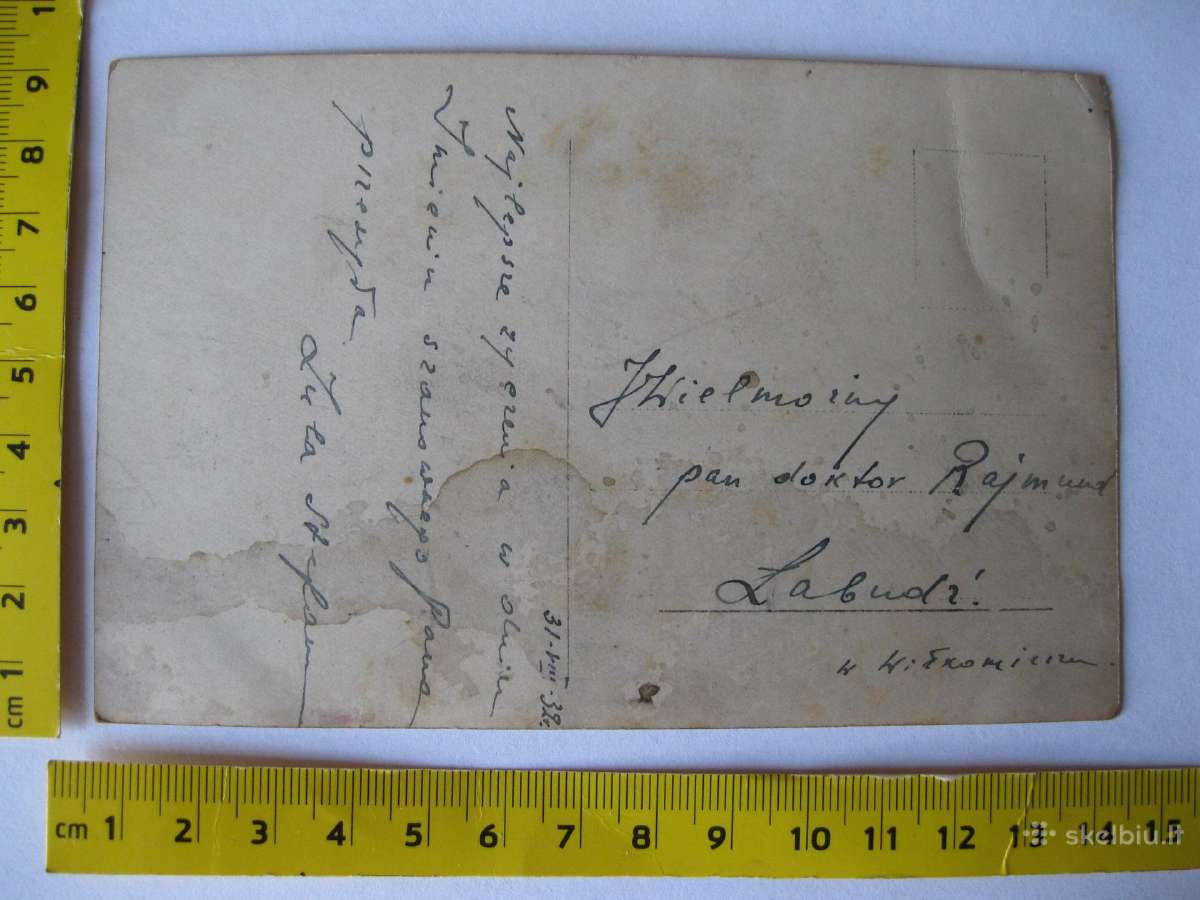 Najlepsze życzenia w dniu
Imienin szanownego Pana
przesyła
31-VIII-32r.
JWielmożny
pan doktor Rajmund
Labudź.
w Wiłkomierzu.
cm 1 2 3 4 5 6 7 8 9 1
cm 1 2 3 4 5 6 7 8 9 10 11 12 13 14 15
skelbiu.lt